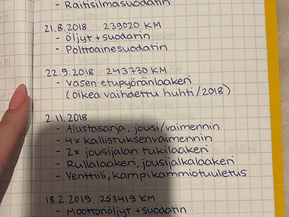 - Raitisilmasuodatin
21.8.2018 239020 KM
- Öljyt + suodatin
- Polttoainesuodatin
22.9.2018 243730 KM
- Vasen etupyöränlaakeri
(oikea vaihdettu huhti/2018)
2.11.2018
- Alustasarja, jousi/vaimennin
- 4x kallistuksenvaimennin
- 2x jousijalan tukilaakeri
- Rullalaakeri, jousijalkalaakeri
- Venttiili, kampikammiotuuletus
18.2.2019 253419 KM
- Moottoriöljyt + suodatin